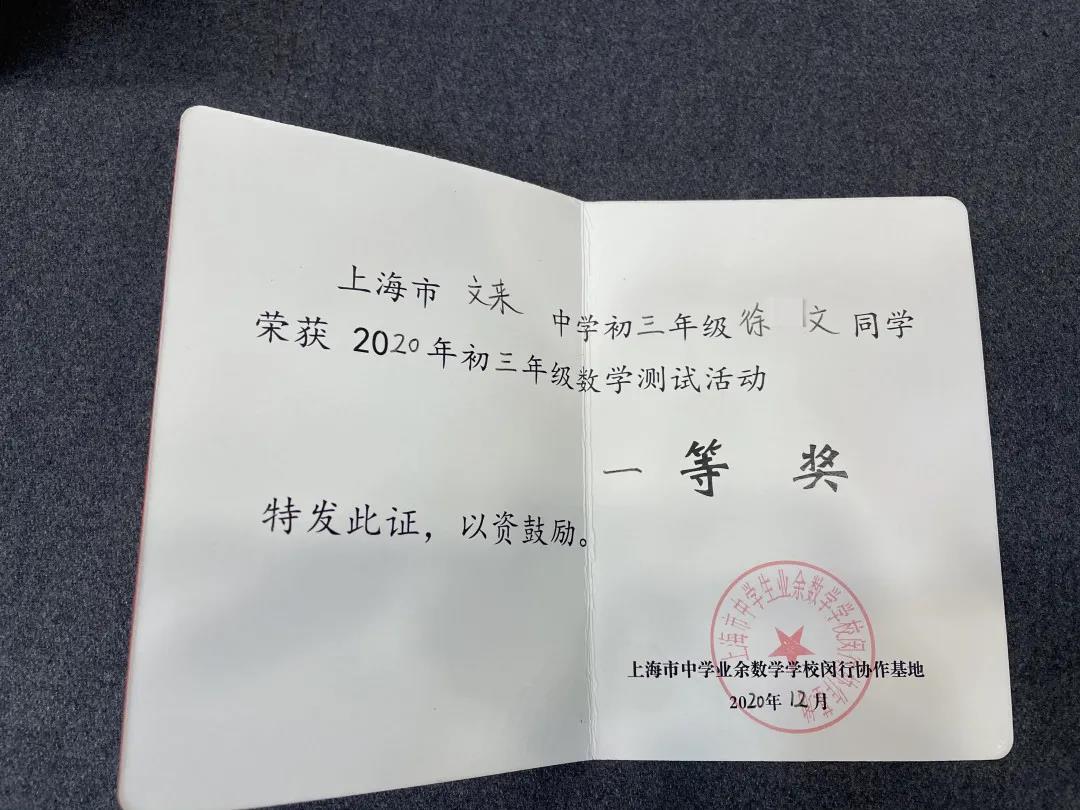 上海市 文来 中学初三年级 徐 文 同学
荣获 2020年初三年级数学测试活动
一 等 奖
特发此证，以资鼓励。
上海市中学业余数学学校闵行协作基地
2020年 12月
上海市中学生业余数学学校闵行协作基地